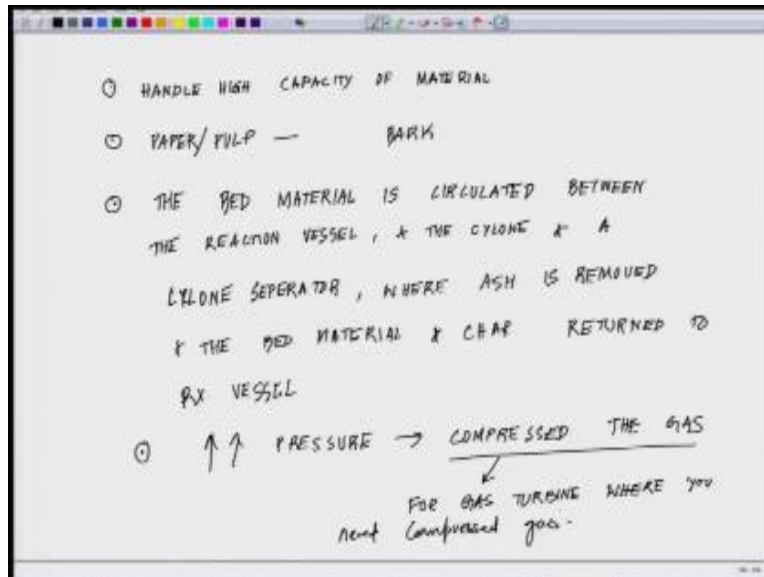 HANDLE HIGH CAPACITY OF MATERIAL
PAPER/PULP — BARK
THE BED MATERIAL IS CIRCULATED BETWEEN
THE REACTION VESSEL, & THE CYLONE & A
CYLONE SEPERATOR, WHERE ASH IS REMOVED
& THE BED MATERIAL & CHAR RETURNED TO
RX VESSEL
↑↑ PRESSURE → COMPRESSED THE GAS
FOR GAS TURBINE WHERE YOU
need Compressed gas.